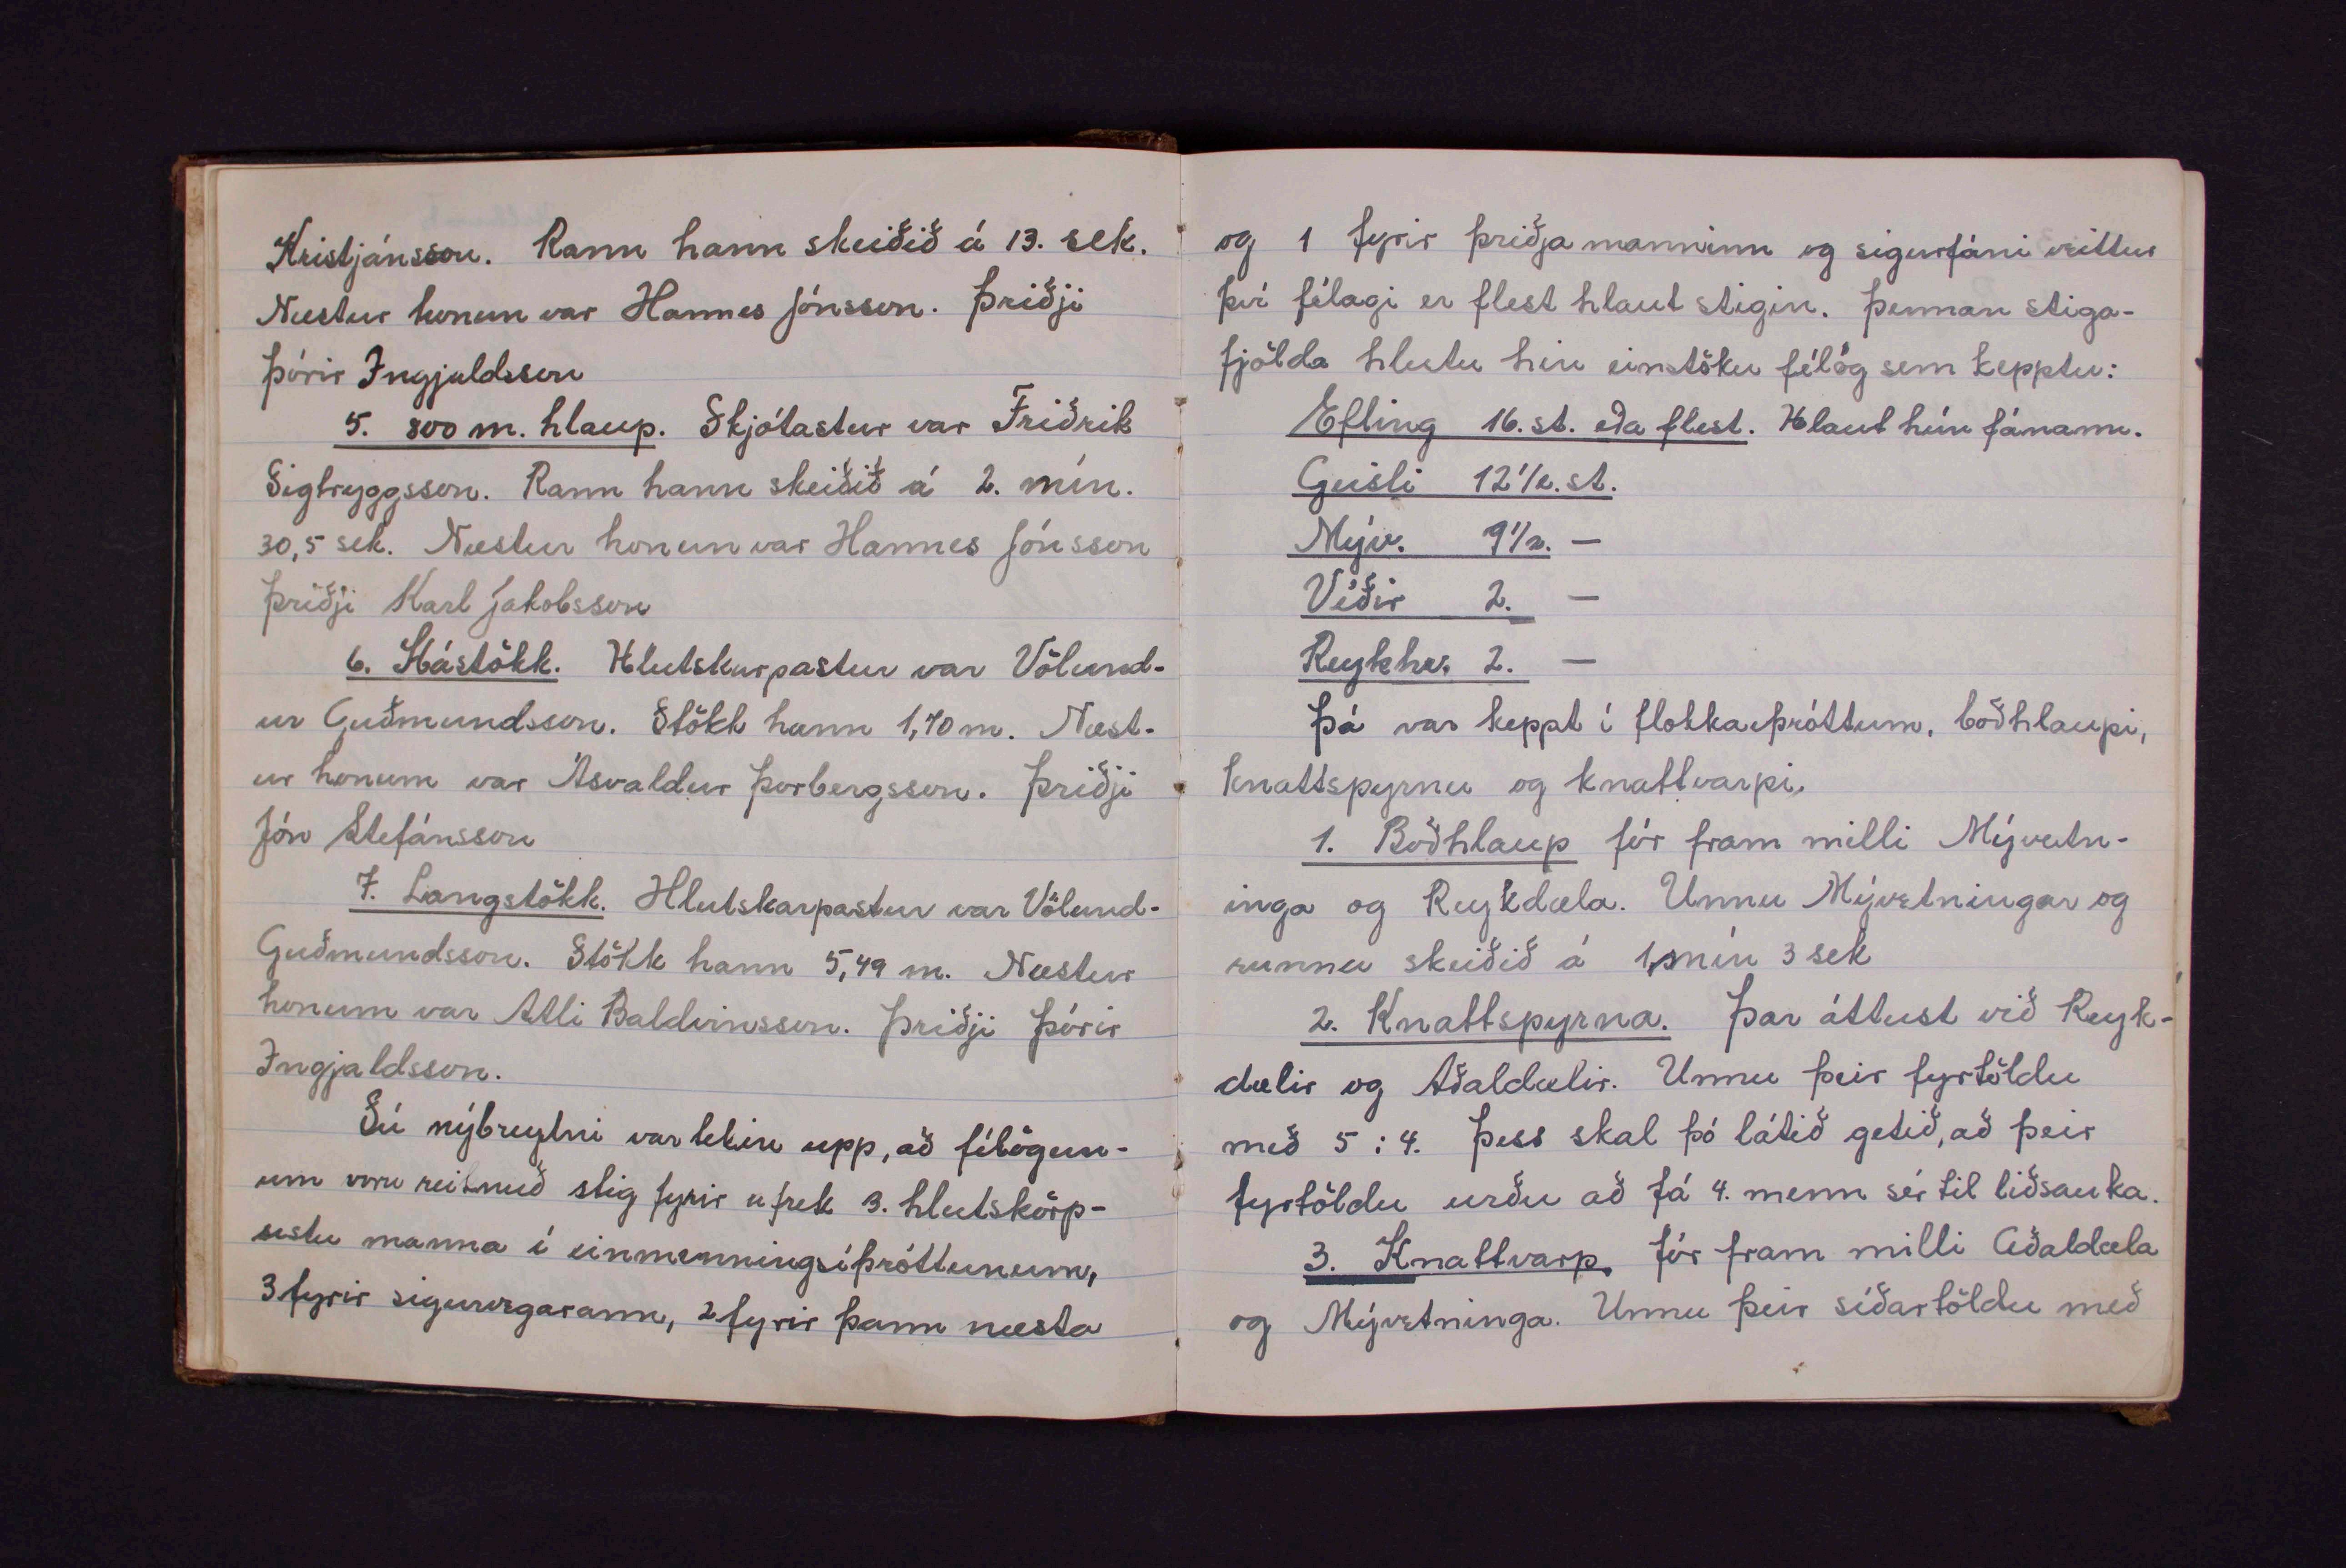 Kristjánsson. Rann hann skeiðið á 13. sek.
Næstur honum var Hannes Jónsson. Þriðji
Þórir Ingjaldsson
5. 800 m. hlaup. Skjótastur var Friðrik
Sigtryggsson. Rann hann skeiðið á 2. mín.
30,5 sek. Næstur honum var Hannes Jónsson
þriðji Karl Jakobsson
6. Hástökk. Hlutskarpastur var Völund-
ur Guðmundsson. Stökk hann 1,70 m. Næst-
ur honum var Ásvaldur Þorbergsson. Þriðji
Jón Stefánsson
7. Langstökk. Hlutskarpastur var Völund-
Guðmundsson. Stökk hann 5,49 m. Næstur
honum var Atli Baldvinsson. Þriðji Þórir
Ingjaldsson.
Sú nýbreytni var tekin upp, að félögun-
um voru reiknuð stig fyrir afrek 3. hlutskörp-
ustu manna í einmenningsíþróttunum,
3 fyrir sigurvegarann, 2 fyrir þann næsta
og 1 fyrir þriðja manninn og sigurfáni veittur
því félagi er flest hlaut stigin. Þennan stiga-
fjölda hlutu hin einstöku félög sem kepptu:
Efling 16. st. eða flest. Hlaut hún fánann.
Geisli 12 1/2. st.
Mýv. 9 1/2. —
Víðir 2. —
Reykhv. 2. —
Þá var keppt í flokkaíþróttum, boðhlaupi,
knattspyrnu og knattvarpi.
1. Boðhlaup fór fram milli Mývetn-
inga og Reykdæla. Unnu Mývetningar og
runnu skeiðið á 1, mín 3 sek
2. Knattspyrna. Þar áttust við Reyk-
dælir og Aðaldælir. Unnu þeir fyrtöldu
með 5 : 4. Þess skal þó látið getið, að þeir
fyrtöldu urðu að fá 4. menn sér til liðsauka.
3. Knattvarp. fór fram milli Aðaldæla
og Mývetninga. Unnu þeir síðartöldu með